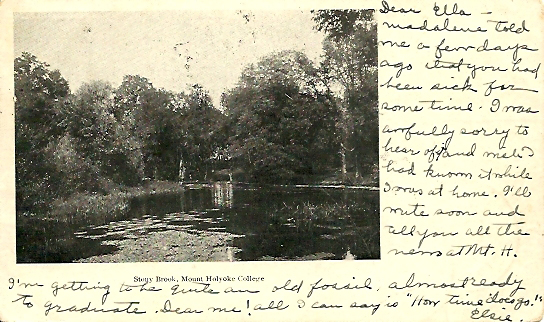 Dear Ella -
Madalene told
me a few days
ago that you had
been sick for
some time. I was
awfully sorry to
hear of it and
had known it while
I was at home. I'll
write soon and
tell you all the
news at Mt. H.
Stony Brook, Mount Holyoke College
I'm getting to be quite an old fossil, almost ready
to graduate. Dear me! all I can say is "How time does go."
Elsie.